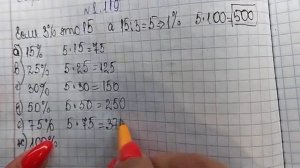 № 110
Если 3% это 15 а 15:3=5⇒1% 5·100=500
а) 15% 5·15=75
б) 25% 5·25=125
в) 30% 5·30=150
г) 50% 5·50=250
д) 75% 5·75=375
ж) 100%